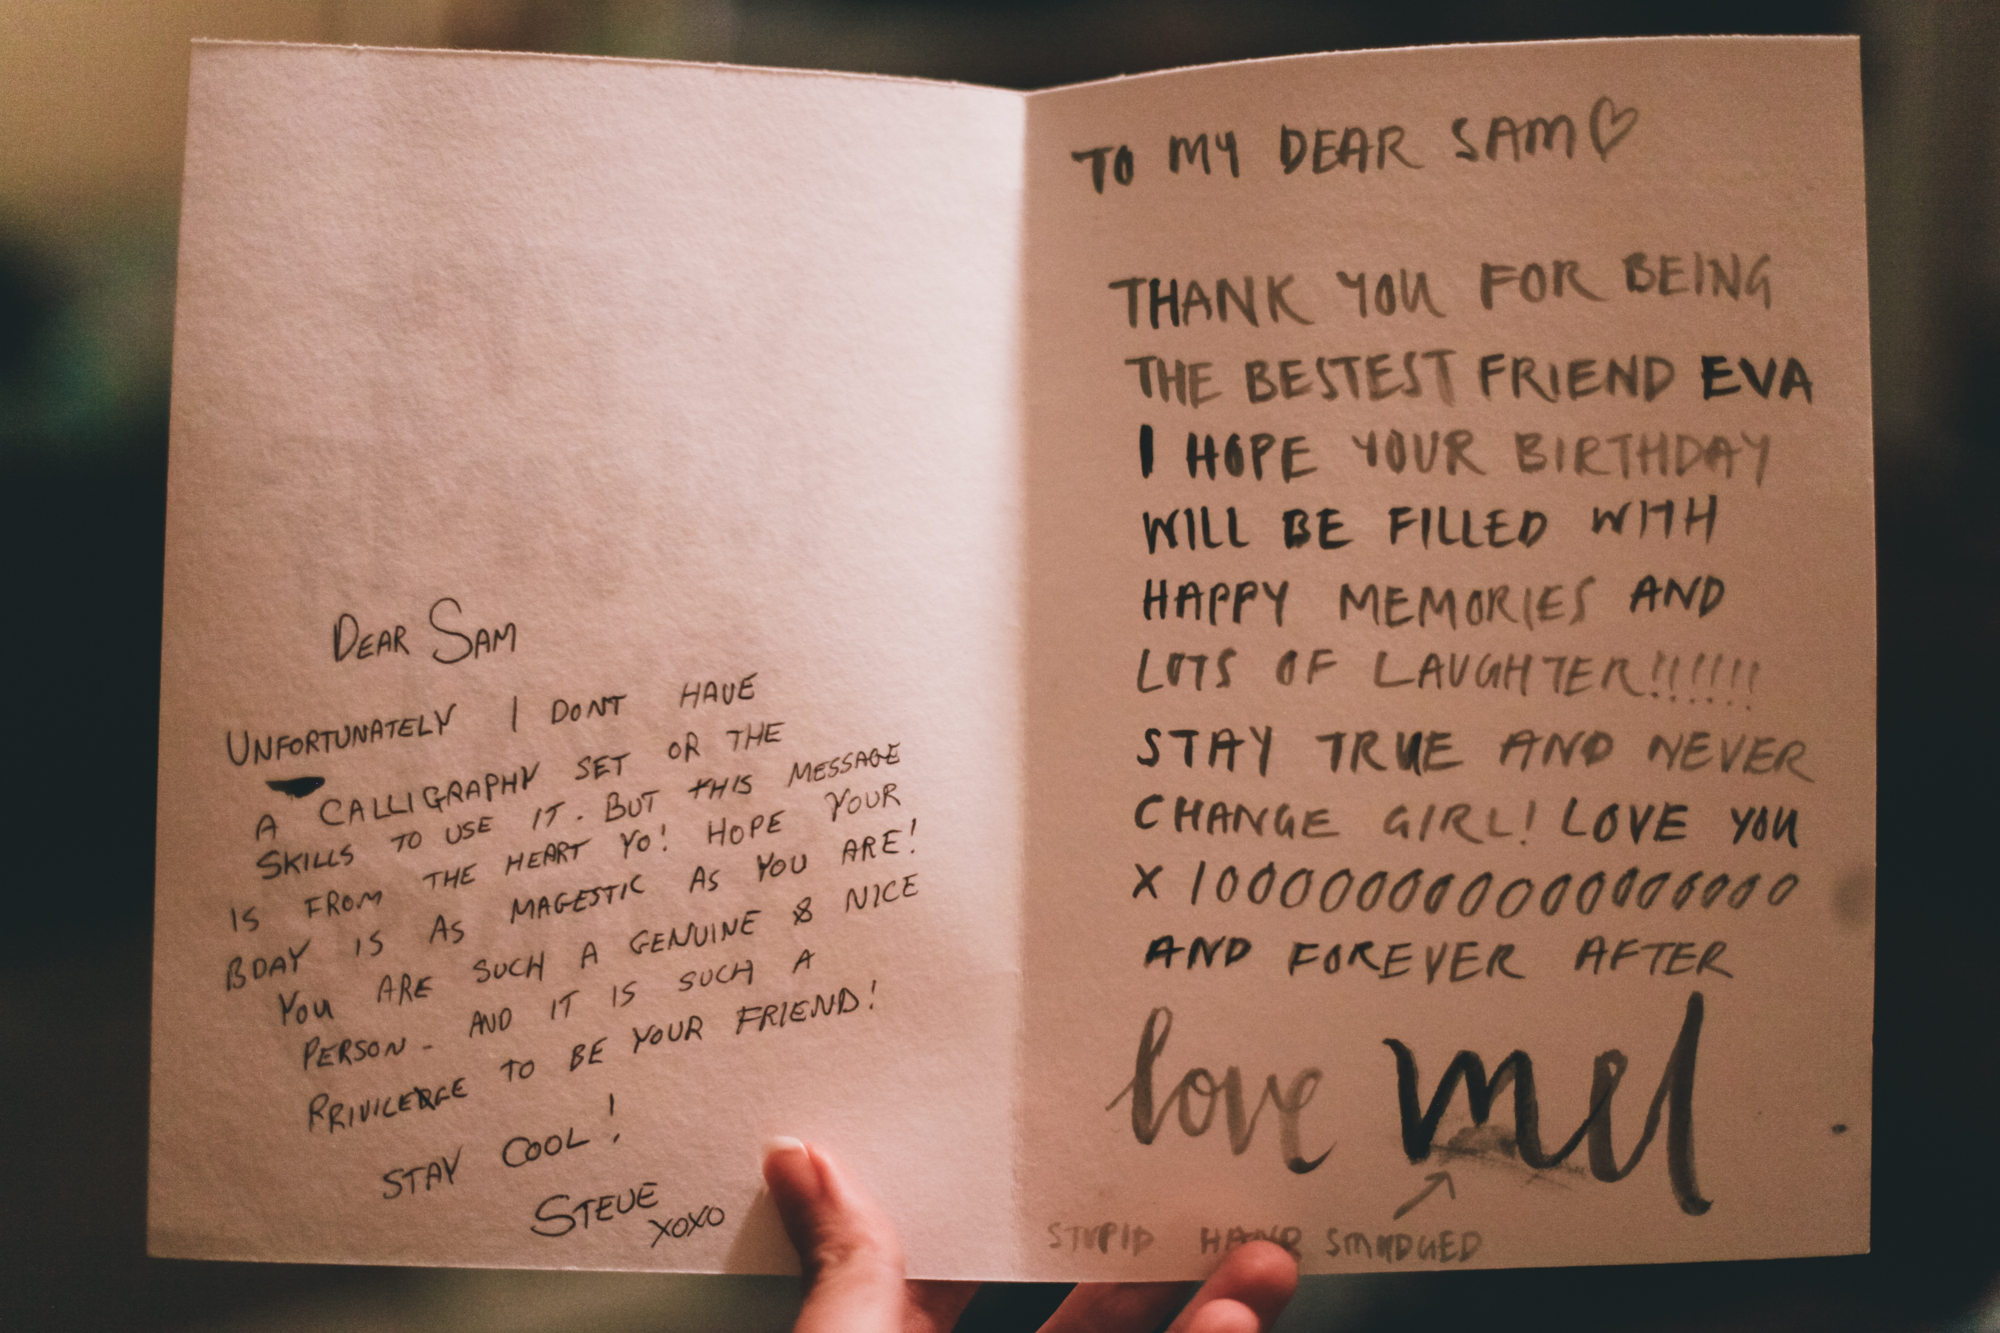 DEAR SAM
UNFORTUNATELY I DONT HAVE
A CALLIGRAPHY SET OR THE
SKILLS TO USE IT. BUT THIS MESSAGE
IS FROM THE HEART YO! HOPE YOUR
BDAY IS AS MAGESTIC AS YOU ARE!
YOU ARE SUCH A GENUINE & NICE
PERSON - AND IT IS SUCH A
PRIVILEDGE TO BE YOUR FRIEND!
STAY COOL!
STEVE
XOXO
TO MY DEAR SAM♡
THANK YOU FOR BEING
THE BESTEST FRIEND EVA
I HOPE YOUR BIRTHDAY
WILL BE FILLED WITH
HAPPY MEMORIES AND
LOTS OF LAUGHTER!!!!!!
STAY TRUE AND NEVER
CHANGE GIRL! LOVE YOU
X 1000000000000000000
AND FOREVER AFTER
love mel
STUPID HAND SMUDGED